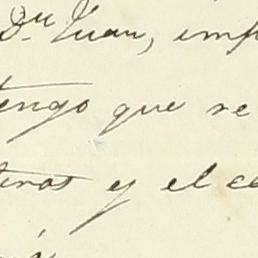 Dn Juan, imp
tengo que re
tiros y el ce